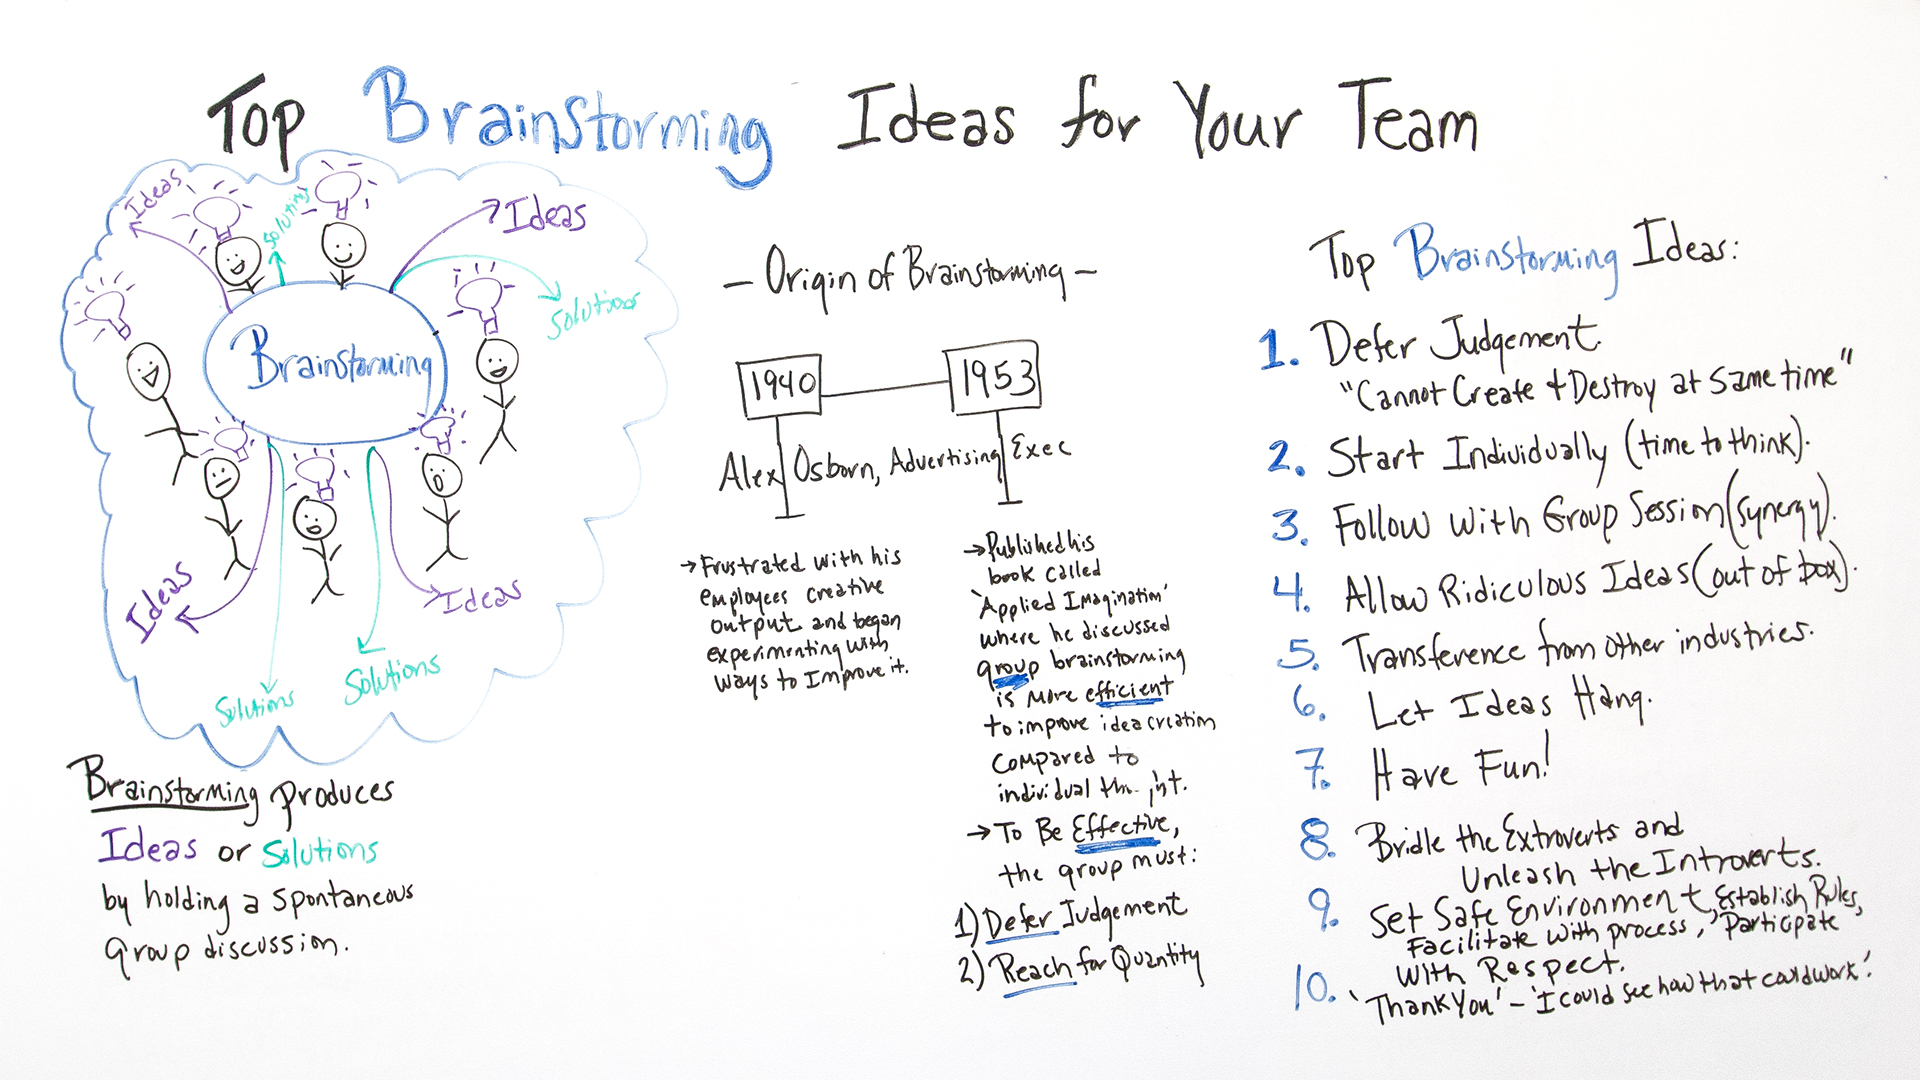 Top Brainstorming Ideas for Your Team
Ideas
Solutions
Ideas
Solutions
Brainstorming
Ideas
Ideas
Solutions
Solutions
Brainstorming produces
Ideas or Solutions
by holding a spontaneous
group discussion.
- Origin of Brainstorming -
1940
1953
Alex Osborn, Advertising Exec
→ Frustrated with his
employees creative
output and began
experimenting with
ways to Improve it.
→ Published his
book called
'Applied Imagination'
where he discussed
group brainstorming
is more efficient
to improve idea creation
compared to
individual
→ To Be Effective,
the group must:
1) Defer Judgement
2) Reach for Quantity
Top Brainstorming Ideas:
1. Defer Judgement.
"Cannot Create + Destroy at same time"
2. Start Individually (time to think).
3. Follow with Group Session (synergy).
4. Allow Ridiculous Ideas (out of box).
5. Transference from other industries.
6. Let Ideas Hang.
7. Have Fun!
8. Bridle the Extroverts and
Unleash the Introverts.
9. Set Safe Environment, Establish Rules,
Facilitate with process, 'Participate
with Respect.
10. 'Thank You' - 'I could see how that could work'.